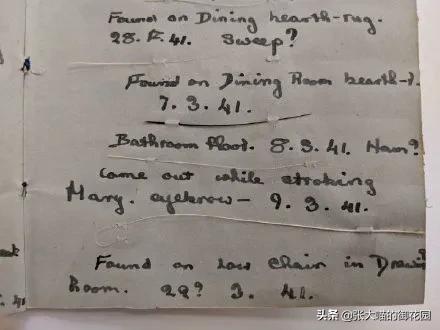 Found on Dining hearth-rug.
28. 2. 41. Sweep?
Found on Dining Room hearth-r
7. 3. 41.
Bathroom floor. 8. 3. 41.
Came out while stroking
Mary. eyebrow — 9. 3. 41.
Found on Low Chair in
Room. 3. 41.
41
头条 @张大喵的御花园